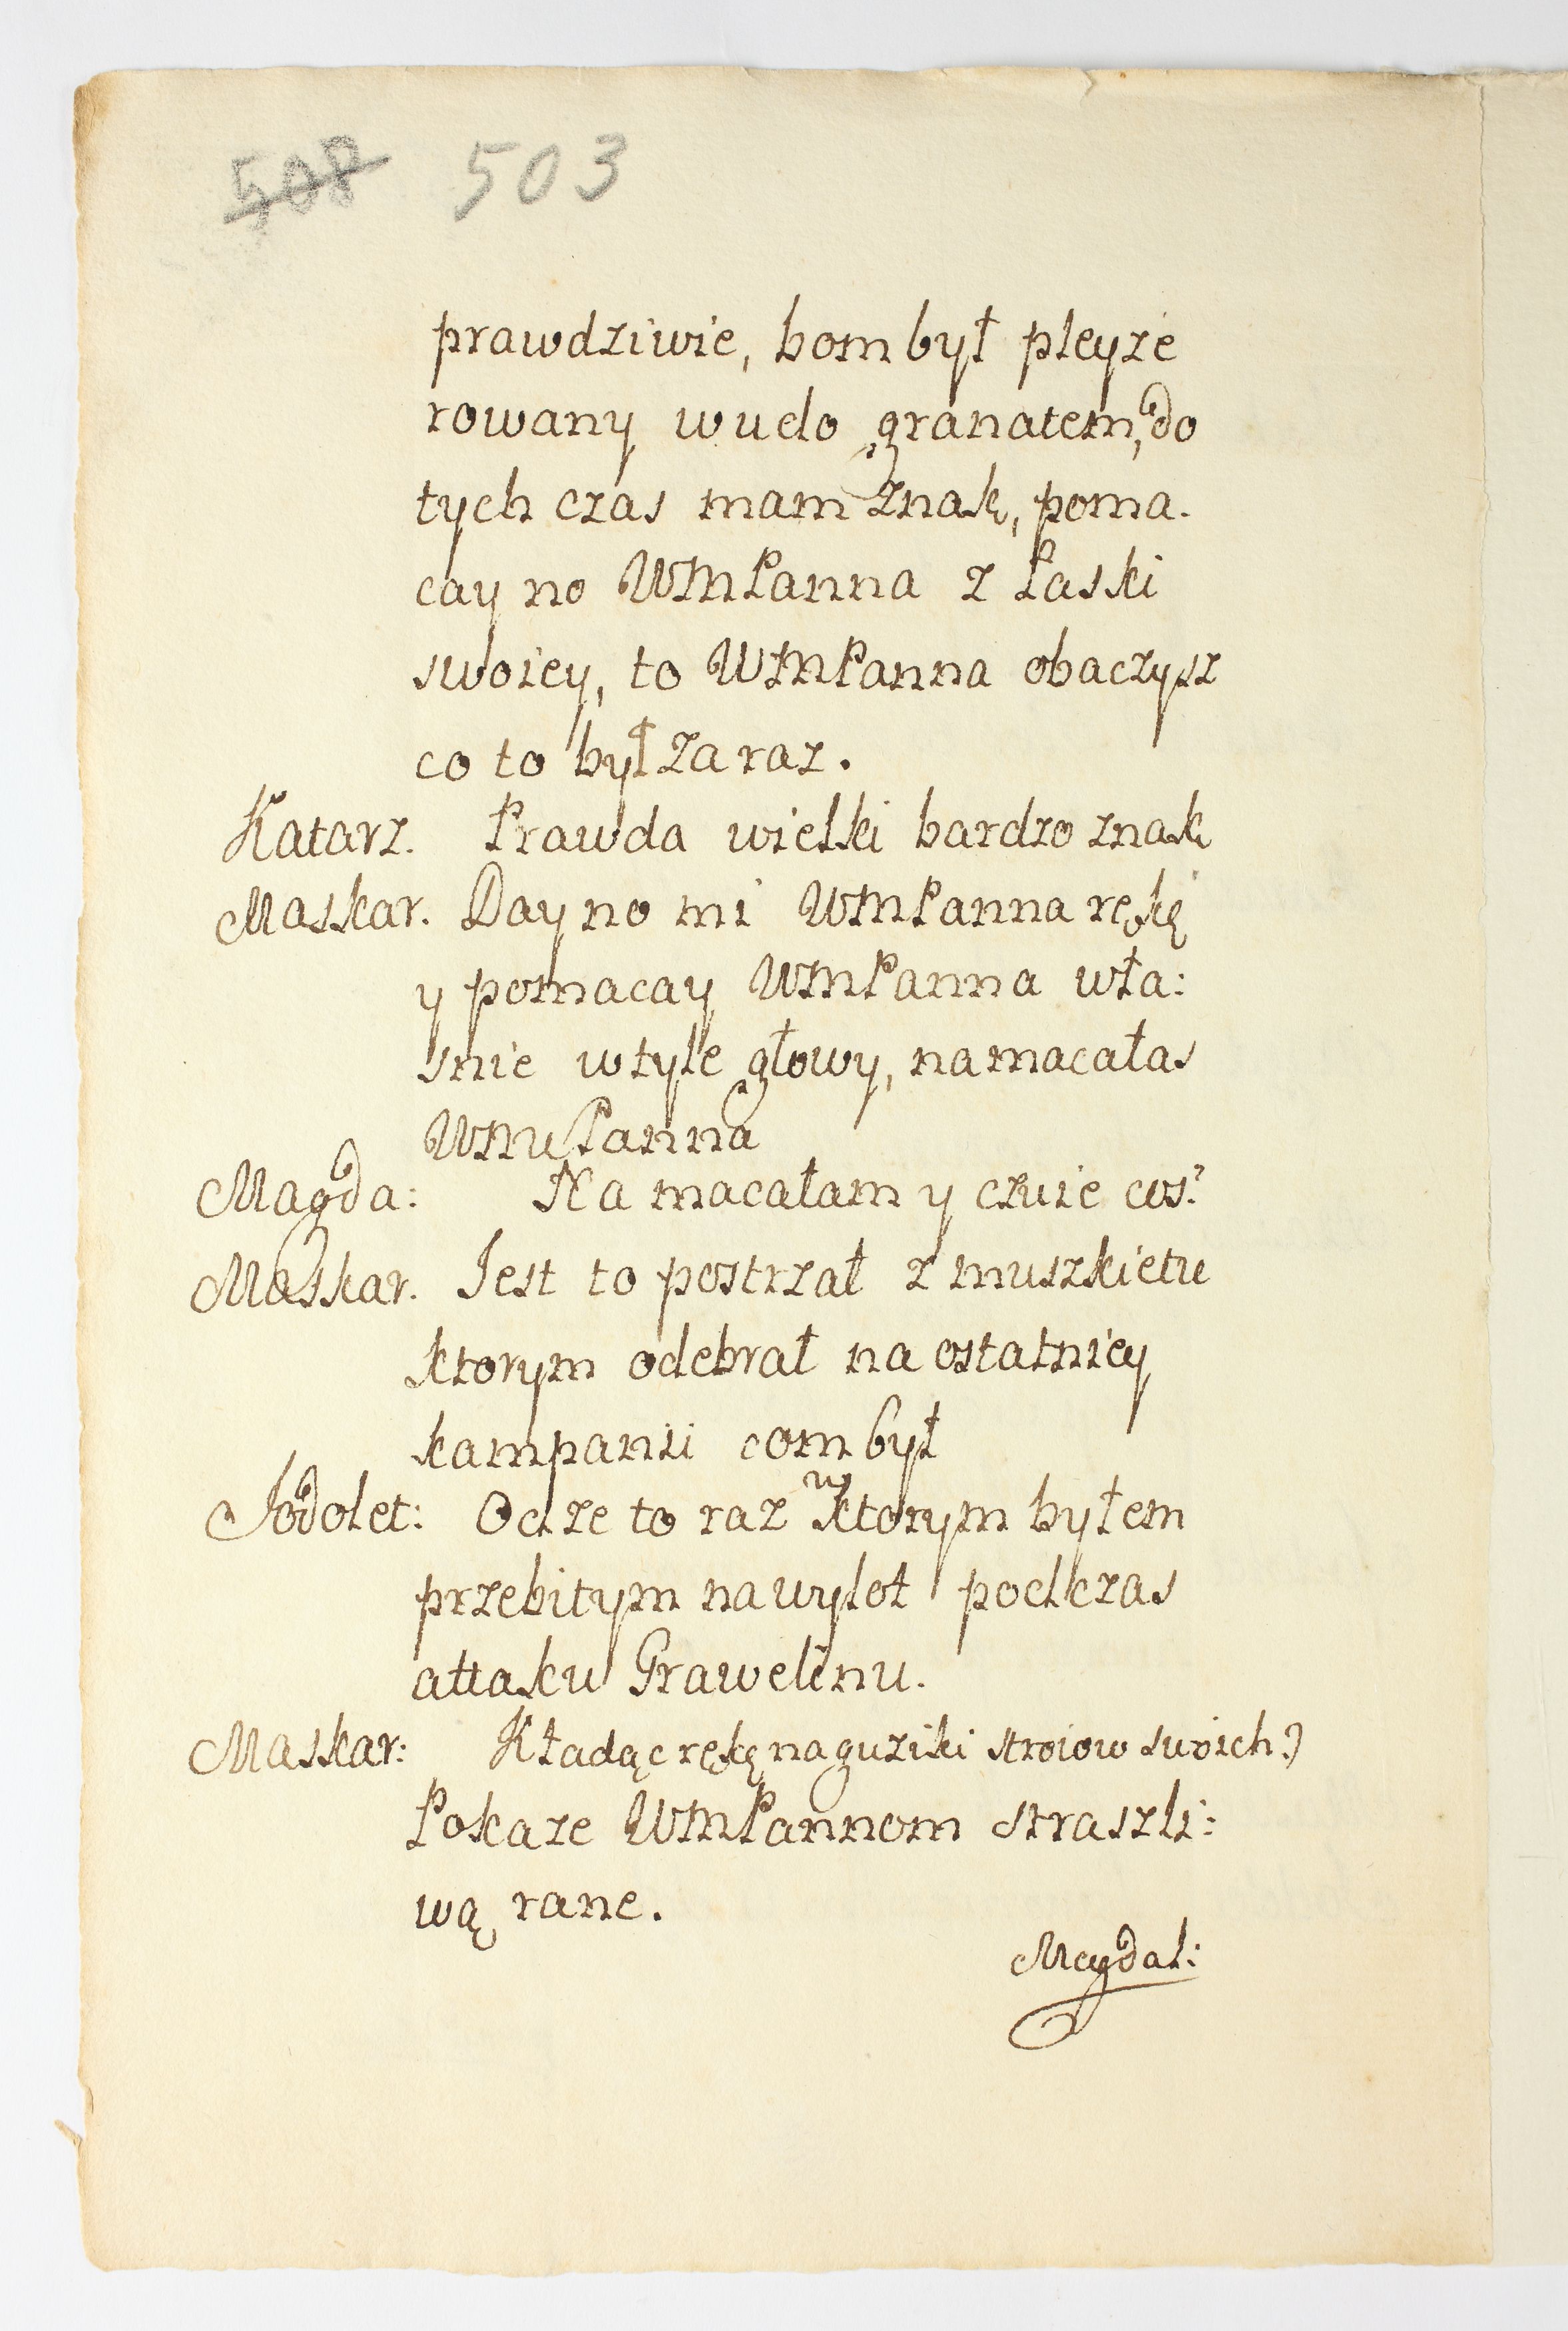 508 503
prawdziwie, bom był pleyze
rowany w udo granatem, do
tych czas mam znak, poma-
cay no WMPanna z łaski
swoiey, to WMPanna obaczysz
co to był za raz.
Katarz. Prawda wielki bardzo znak
Maskar. Day no mi WMPanna rękę
y pomacay WMPanna wła:
snie w tyle głowy, namacałas
WMuPanna
Magda: Na macałam y czuie cos?
Maskar. Iest to postrzał z muszkietu
ktorym odebrał na ostatniey
kampanii com był
Jodolet: Od ze to raz w ktorym byłem
przebitym na wylot podczas
attaku Grawelinu.
Maskar: Kładąc rękę na guziki stroiow swoich:)
Pokaze WMPannom straszli:
wą rane.
Magdal: